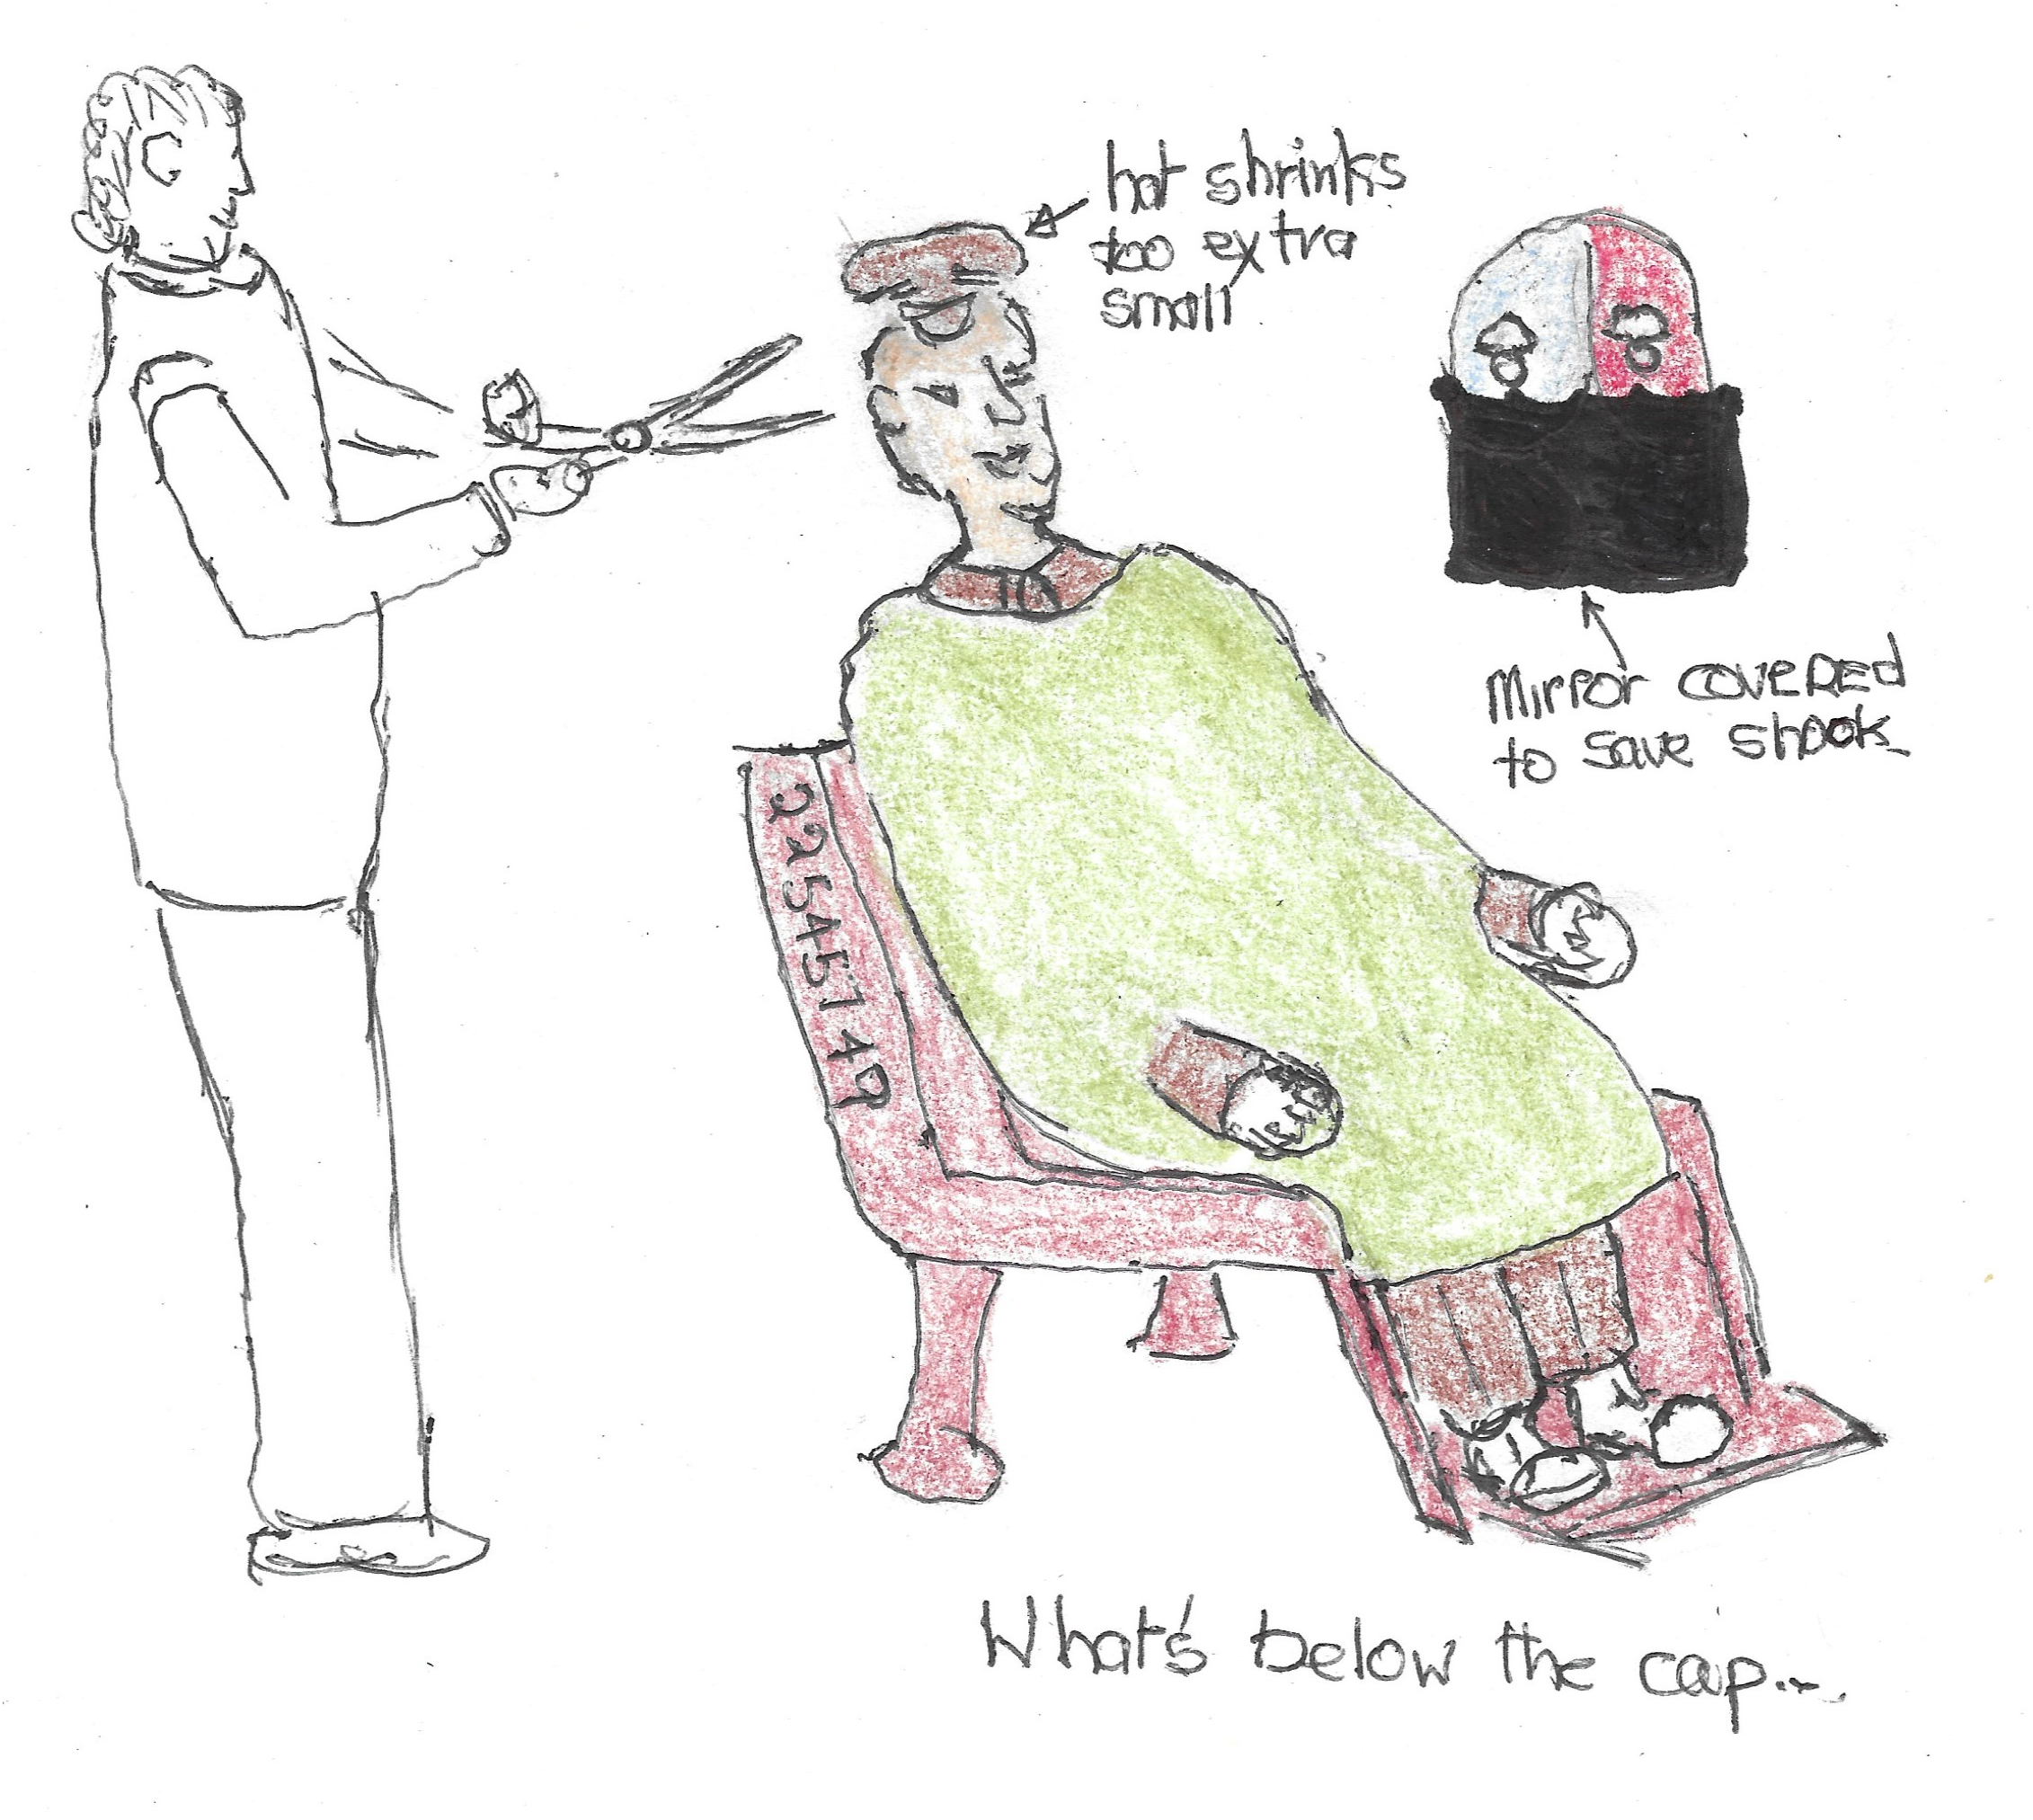 hat shrinks
too extra
small
Mirror covered
to save shook
22545749
What's below the cap...